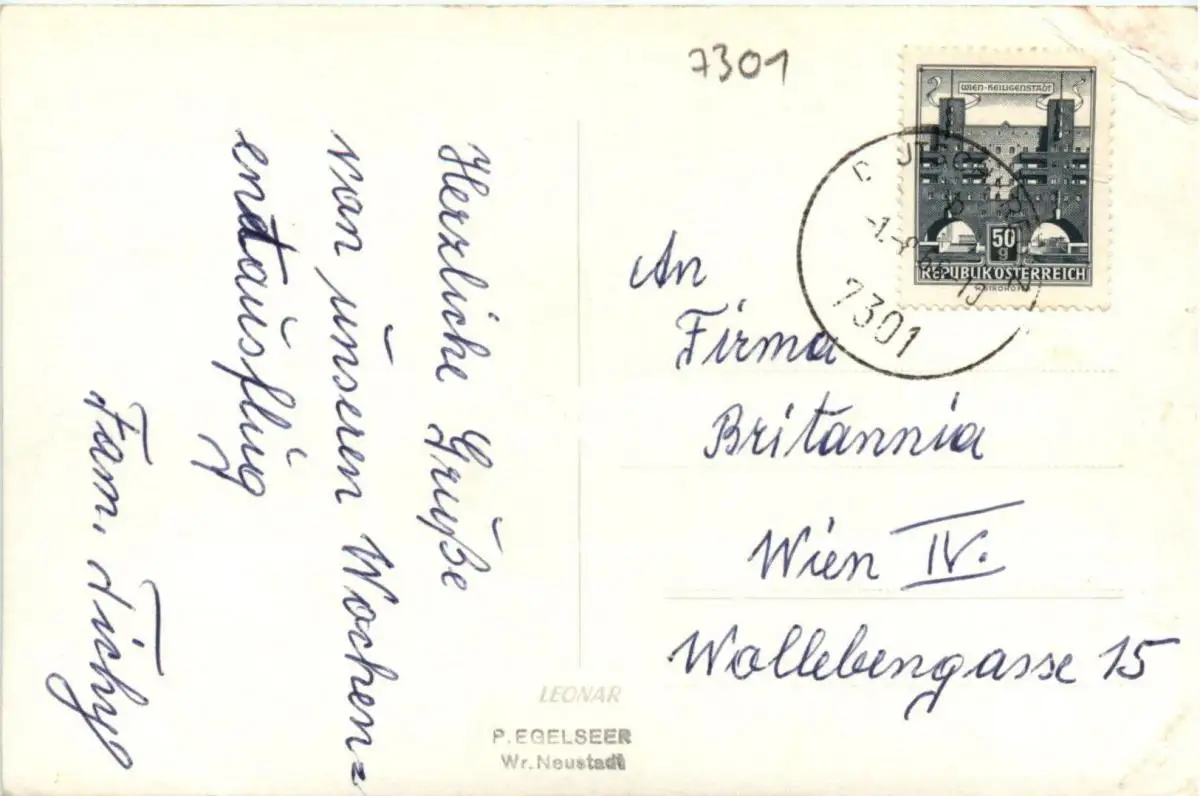 7301
WIEN-HEILIGENSTADT
50
g
REPUBLIK ÖSTERREICH
7301
Herzliche Grüße
von unseren Wochen=
endausflug
Fam. Tichy
An
Firma
Britannia
Wien IV.
Wollebengasse 15
LEONAR
P. EGELSEER
Wr. Neustadt